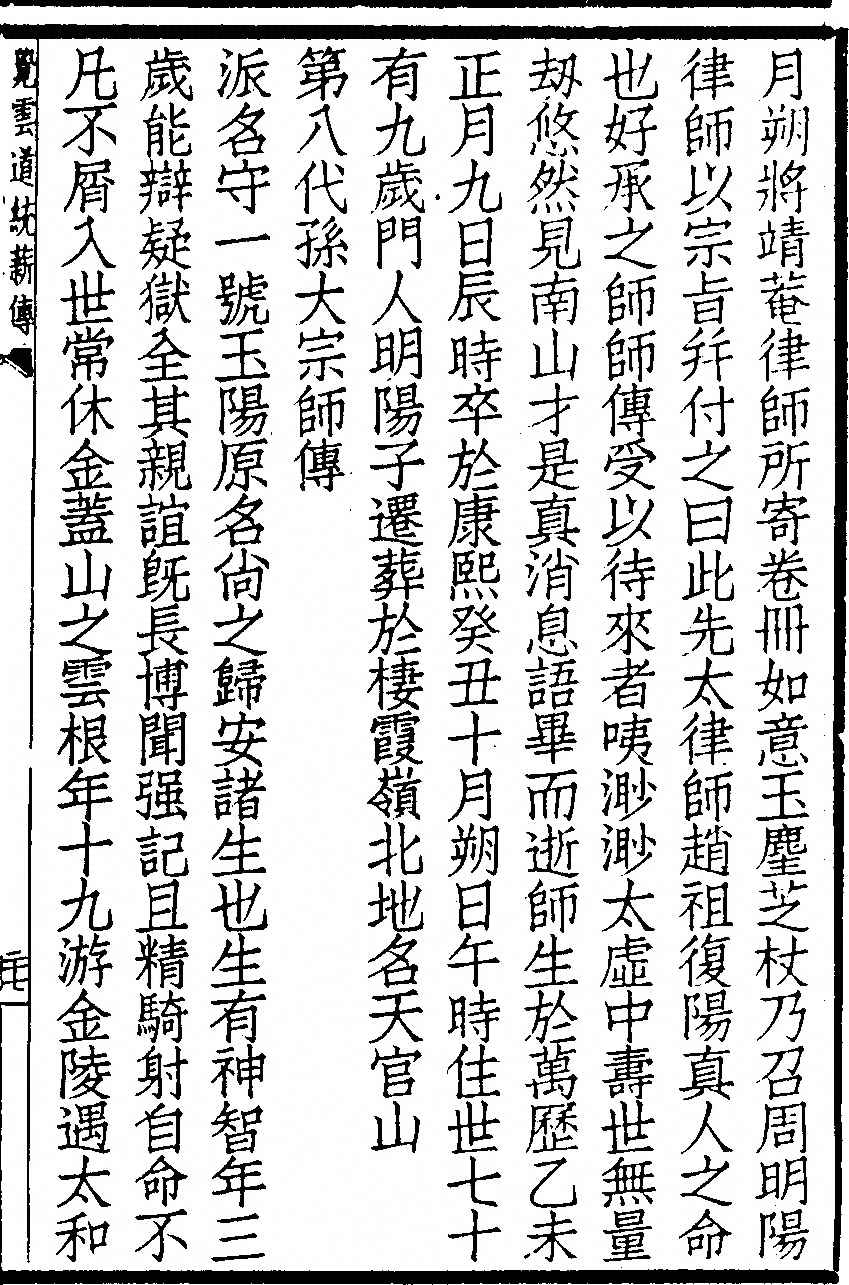 月朔將靖菴律師所寄卷冊如意玉麈芝杖乃召周明陽
律師以宗旨幷付之曰此先太律師趙祖復陽真人之命
也好承之師師傳受以待來者咦渺渺太虛中壽世無量
刼悠然見南山才是真消息語畢而逝師生於萬歷乙未
正月九日辰時卒於康熙癸丑十月朔日午時住世七十
有九歲門人明陽子遷葬於棲霞嶺北地名天官山
第八代孫大宗師傳
派名守一號玉陽原名尙之歸安諸生也生有神智年三
歲能辯疑獄全其親誼旣長博聞强記且精騎射自命不
凡不屑入世常休金蓋山之雲根年十九游金陵遇太和
覺雲道統薪傳